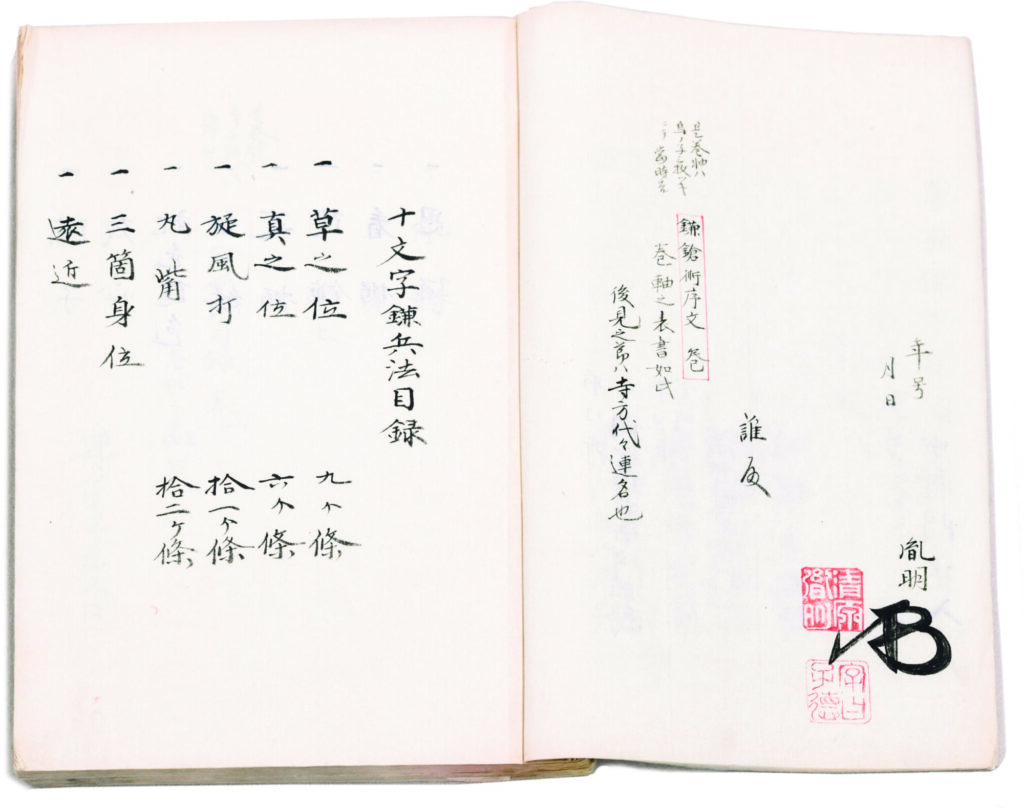 年号
月日
胤明
清原
胤明
字曰
子德
誰殿
是巻軸ハ
鎌鎗術序文 巻
巻軸之表書如此
後見之節ハ寺方代々連名也
十文字鎌兵法目録
一 草之位 九ヶ條
一 真之位 六ヶ條
一 旋風打 拾一ヶ條
一 丸嘴 拾二ヶ條
一 三箇身位
一 遠近